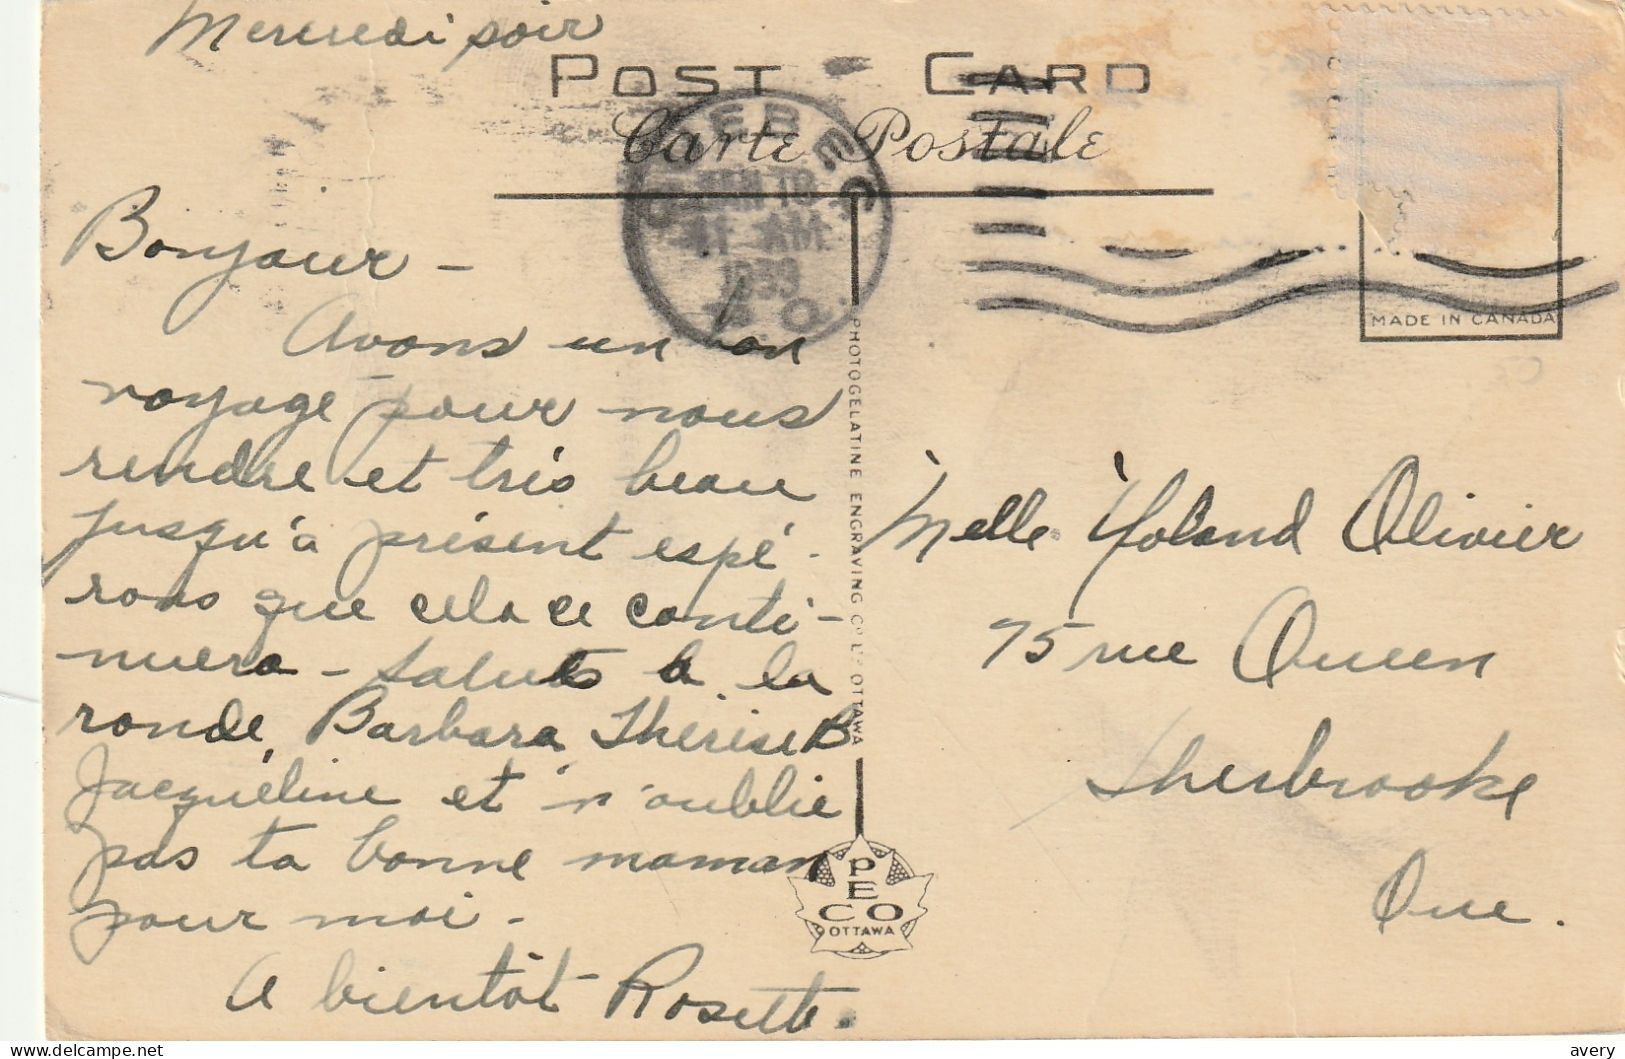 Mercredi soir
POST CARD
Carte Postale
QUEBEC
11 AM
1939
P Q
MADE IN CANADA
Bonjour -
Avons un bon
voyage pour nous
rendre et très beau
jusqu'à présent espé-
rons que cela ce conti-
nuera - Saluts à la
ronde, Barbara, Thérèse B
Jacquéline et n'oublie
pas ta bonne maman
pour moi -
A bientôt Rosette.
PHOTOGELATINE ENGRAVING CO. LTD. OTTAWA
PECO
OTTAWA
Melle Yoland Olivier
75 rue Queen
Sherbrooke
Que.
delcampe.net
avery